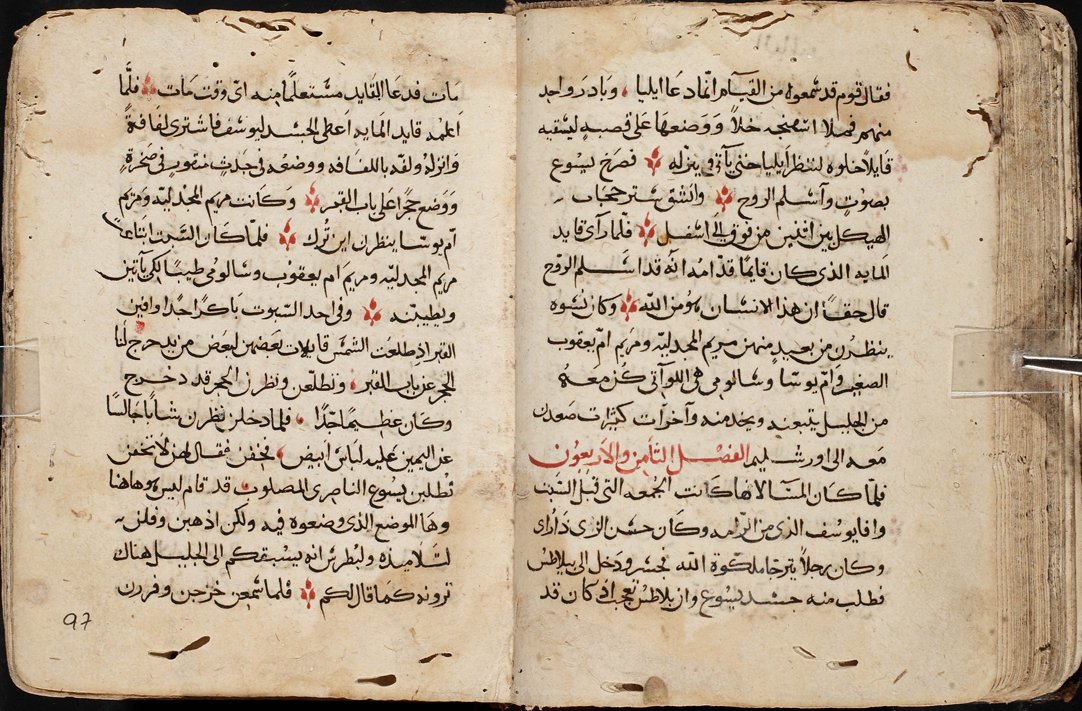 فقال قوم قد سمعوه من القيام انما دعا ايليا وبادر واحد
منهم فملا اسفنجه خلاً ووضعها على قصبه ليسقيه
قايلاً خلوه لننظر ايليا حتى يآتي ينزله فصرخ يسوع
بصوتٍ وآسلم الروح وانشق ستر حجاب
الهيكل بين اثنين من فوق الى اسفل فلما رآى قايد
المايه الذى كان قايمًا قدامه انه قد اسلم الروح
قال حقاً ان هذا الانسان هو من الله وكان نسوه
ينظرن من بعيدٍ منهن مريم المجدليه ومريم ام يعقوب
الصغير وام يوسا وسالومى هى اللواتى كن معه
من الجليل يتبعنه ويخدمنه وآخرات كثيرات صعدن
معه الى اورشليم الفصل الثامن والاربعون
فلما كان المسا لانها كانت الجمعه التى قبل السبت
وافا يوسف الذى من الرامه وكان حسن الزى ذا راى
وكان رجلاً يترجا ملكوة الله فجسر ودخل الى بيلاطس
فطلب منه جسد يسوع وان بيلاطس تعجب اذ كان قد
مات فدعا القايد مستعلمًا منه اى وقت مات فلما
اعلمه قايد المايه اعطى الجسد ليوسف فاشترى لفافةً
وانزله ولفه باللفافه ووضعه فى جدثٍ منقوب فى صخرةٍ
ووضع حجرًا على باب القبر وكانت مريم المجدليه ومريم
ام يوسا ينظرن اين تُرك فلما كان السبت ابتاعت
مريم المجدليه ومريم ام يعقوب وسالومى طيبًا لكى يآتين
ويطيبنه وفى احد السبوت باكرًا جدًا وافين
القبر اذ طلعت الشمس قايلات بعضهن لبعض من يدحرج لنا
الحجر عن باب القبر وتطلعن ونظرن الحجر قد دحرج
وكان عظيمًا جدًا فلما دخلن نظرن شابًا جالسًا
عن اليمين عليه لباس ابيض فخفن فقال لهن لا تخفن
تطلبن يسوع الناصرى المصلوب قد قام ليس هو هاهنا
وها الموضع الذى وضعوه فيه ولكن اذهبن وقلن
لتلاميذه ولبطرس انه يسبقكم الى الجليل هناك
ترونه كما قال لكم فلما سمعن خرجن وفررن
97